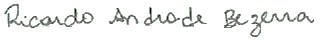 Ricardo Andrade Bezerra